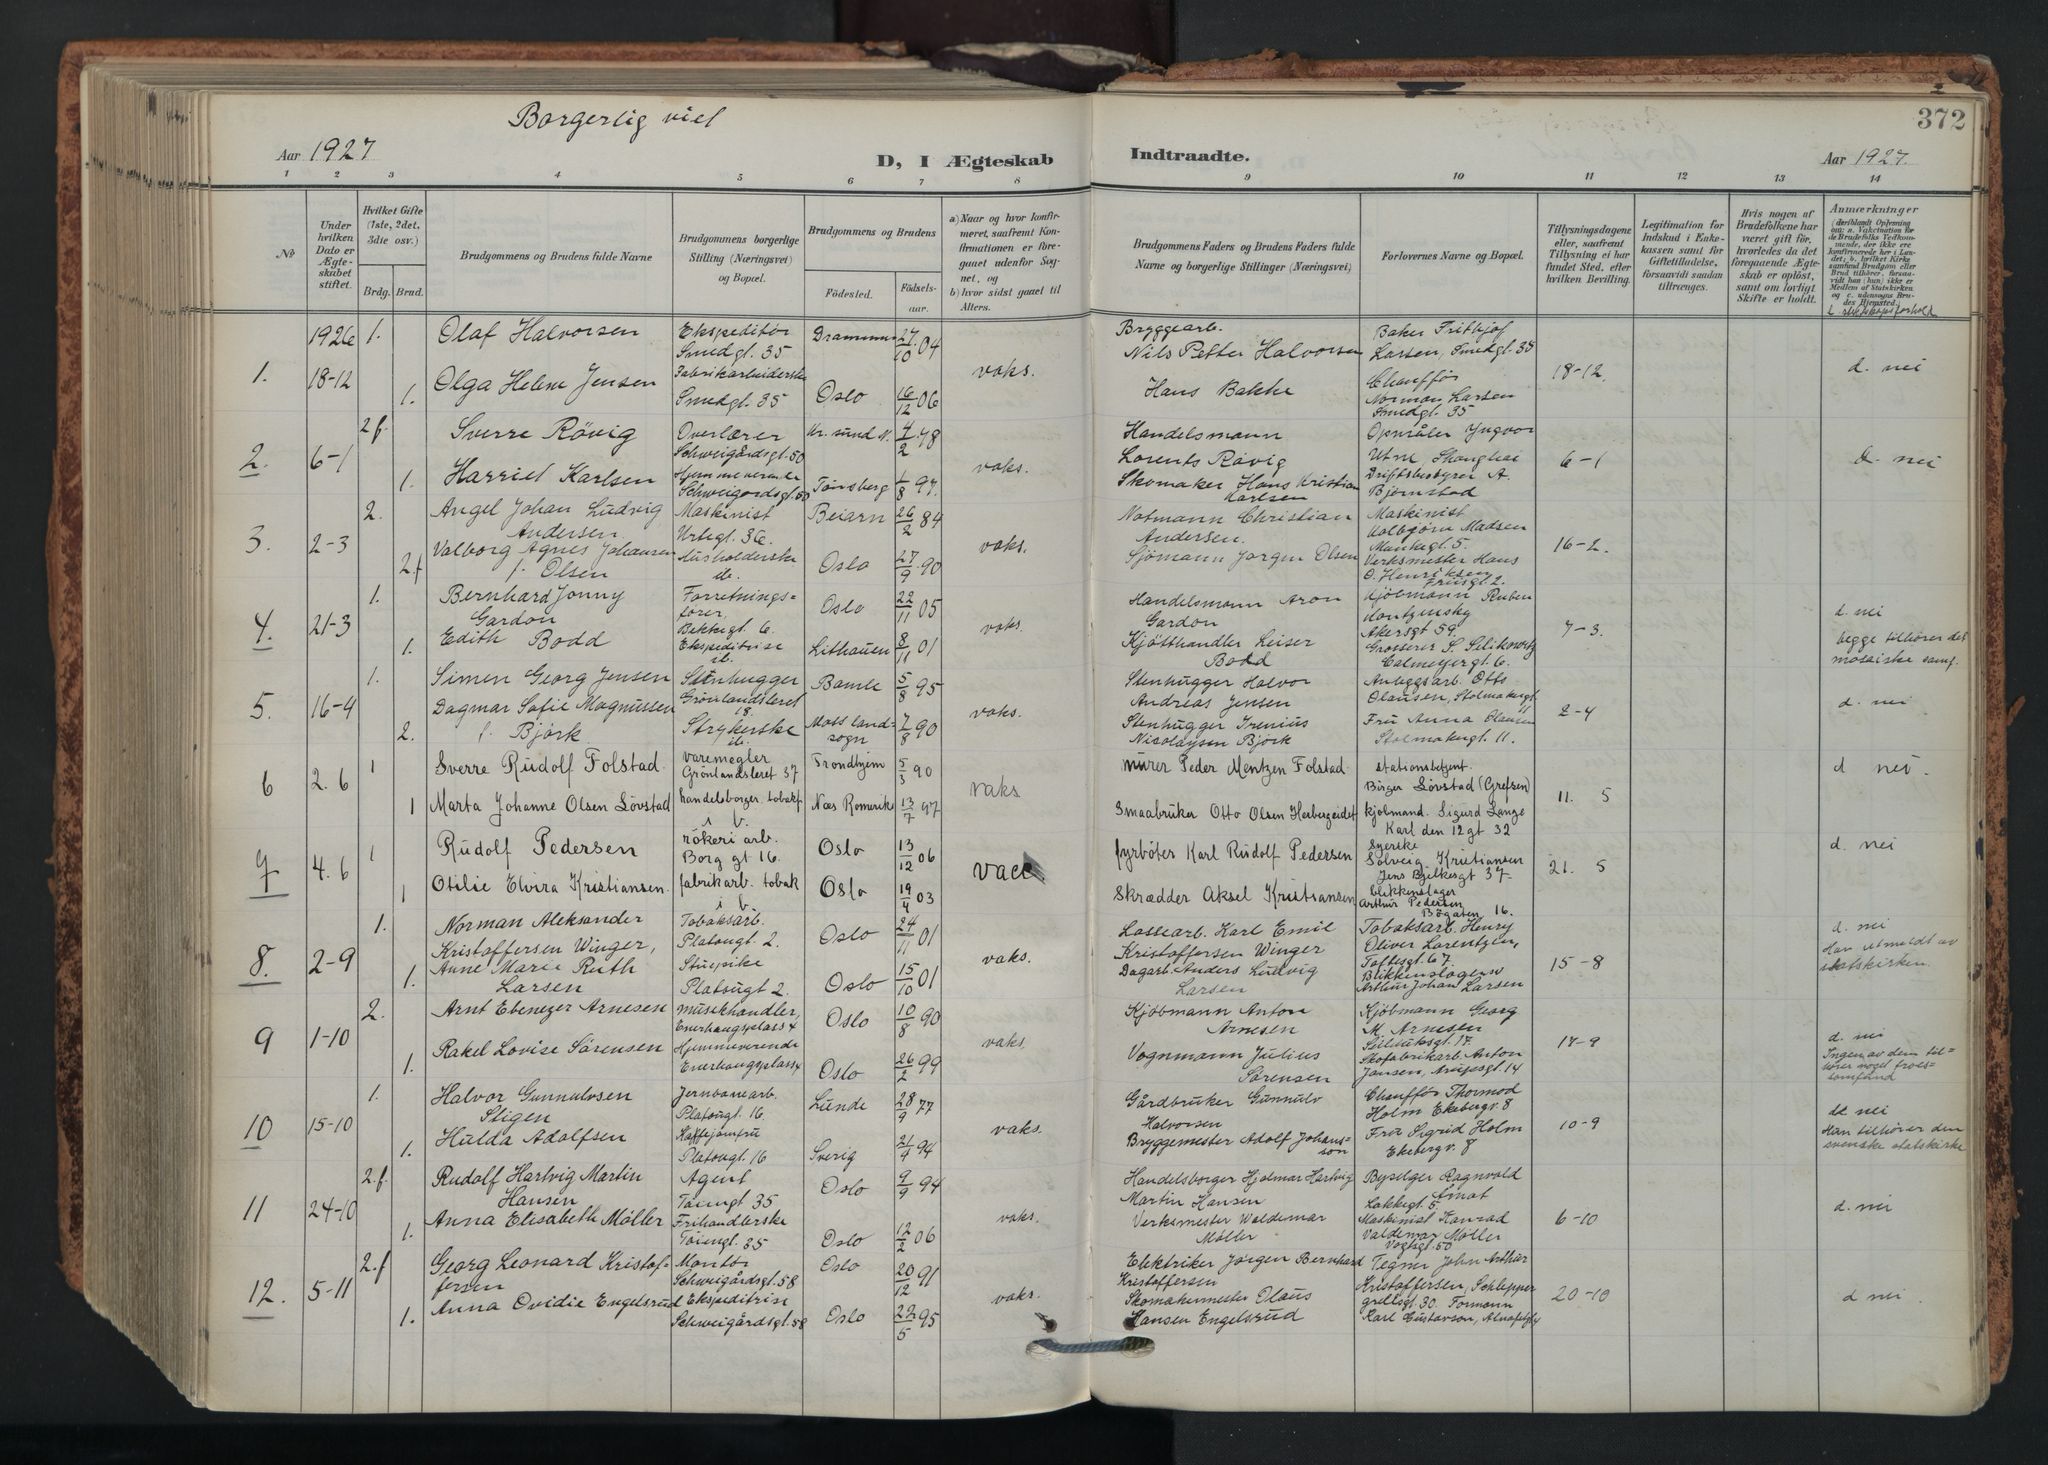 372
Borgerlig viet
Aar 1927
D, I Ægteskab
Indtraadte.
Aar 1927.
1 2 3 4 5 6 7 8 9 10 11 12 13 14
№
Under hvilken Dato er Ægteskabet stiftet.
Hvilket Gifte (1ste, 2det, 3die osv.)
Brdg. Brud.
Brudgommens og Brudens fulde Navne
Brudgommens borgerlige Stilling (Næringsvei) og Bopæl.
Brudgommens og Brudens
Födested. Födselsaar.
a) Naar og hvor konfirmeret, saafremt Konfirmationen er foregaaet udenfor Sognet, og
b) hvor sidst gaaet til Alters.
Brudgommens Faders og Brudens Faders fulde Navne og borgerlige Stillinger (Næringsvei)
Forlovernes Navne og Bopæl.
Tillysningsdagene eller, saafremt Tillysning ei har fundet Sted, efter hvilken Bevilling.
Legitimation for Indskud i Enkekassen samt for Giftetilladelse, forsaavidt saadan tiltrænges.
Hvis nogen af Brudefolkene har været gift før, hvorledes da det foregaaende Ægteskab er opløst, samt om lovligt Skifte er holdt.
Anmærkninger
1926 1. Olaf Halvorsen Ekspeditör Smedgt. 35 Drammen 27/10 04 Bryggearb. Nils Petter Halvorsen Baker Fritjof Larsen, Smedgt. 35
1. 18-12 1. Olga Helene Jensen Fabrikarbeiderske Smedgt. 35 Oslo 16/12 06 vaks. Hans Bakke Chauffør Norman Larsen Smedgt. 35 18-12. d. nei
2.f. Sverre Rövig Overlærer Schweigårdsgt. 50 Kr. sund N. 4/2 78 Handelsmann Lorents Rövig Opmåler Yngvar Utne Shanghai
2. 6-1 1. Harriet Karlsen Hjemmeværende Schweigårdsgt. 50 Tønsberg 1/8 97. vaks. Skomaker Hans Kristian Karlsen Driftsbestyrer A. Bjørnstad 6-1 d. nei
2. Angel Johan Ludvig Andersen Maskinist Urtegt. 36. Beiarn 26/2 84 Notmann Christian Andersen. Maskinist Madsen Munkegt. 5.
3. 2-3 2.f Valborg Agnes Johansen f. Olsen Husholderske ib. Oslo 27/9 90 vaks. Sjömann Jørgen Olsen Verksmester Hans O. Henriksen 16-2.
1. Bernhard Jonny Gordon Forretningsfører, Bekkegt. 6. Oslo 22/11 05 Handelsmann Aron Gordon Kjöbmann Ruben Akersgt 59.
4. 21-3 1. Edith Bodd Ekspeditrise ib. Lithauen 8/11 01 vaks. Kjötthandler Leiser Bodd Grosserer S. Selikowitz Calmeyergt. 6. 7-3. d. nei begge tilhører det mosaiske samf.
1. Simen Georg Jensen Stenhugger Grönlandsleret 18. Bamle 5/8 95 Stenhugger Halvor Andreas Jensen Anleggsarb. Otto Olausen, Stolmakergt. 11
5. 16-4 2. Dagmar Sofie Magnussen f. Björk Strykerske ib. Moss landsogn 7/8 90 vaks. Stenhugger Irenius Nicolaysen Björk Fru Anna Olausen Stolmakergt. 11. 2-4 d. nei
1 Sverre Rudolf Folstad varemegler Grönlandsleret 37 Trondhjem 5/3 90 murer Peder Mentzen Folstad stationsbetjent Birger Lövstad (Grefsen)
6 2. 6 1 Marta Johanne Olsen Lövstad handelsborger tobakf i. b. Næs Romerike 13/7 97 vaks Smaabruker Otto Olsen Herbergeidet kjolmand. Sigurd Lange Karl den 12 gt 32 11. 5 d nei.
1 Rudolf Pedersen rökeri arb. Borg gt 16. Oslo 13/12 06 fyrböter Karl Rudolf Pedersen syerske Solveig Kristiansen Jens Bjelkesgt 37
7 4. 6 1 Otilie Elvira Kristiansen. fabrikarb. tobak i b. Oslo 19/4 03 vacc Skrædder Aksel Kristiansen blikkenslager Arthur Pedersen 16. 21. 5 d. nei
1. Norman Aleksander Kristoffersen Winger, Tobaksarb. Platougt 2. Oslo 24/11 01 Lossearb. Karl Emil Kristoffersen Winger Tobaksarb. Henry Oliver Lorentzen, Toftesgt. 67.
8. 2-9 1. Anne Marie Ruth Larsen Stuepike Platougt 2. Oslo 15/10 01 vaks. Dagarb. Anders Ludvig Larsen Blikkenslager Arthur Johan Larsen 15-8 d. nei Han utmeldt av statskirken.
2. Arnt Ebenezer Arnesen musikhandler, Enerhaugsplass 4 Oslo 10/8 90 Kjöbmann Anton Arnesen Kjöbmann Georg M. Arnesen
9 1-10 1. Rakel Lovise Sörensen Hjemmeværende Enerhaugsplass 4 Oslo 26/2 99 vaks. Vognmann Julius Sörensen Skofabrikarb. Anton Jansen, 17-9 d. nei Ingen av dem tilhører noget trossamfund
1. Halvor Gunnulvsen Stigen Jernbanearb. Platougt. 16 Lunde 28/9 77 Gårdbruker Gunnulv Halvorsen Chauffør Thormod Holm Ekebergv. 8
10 15-10 1. Hulda Adolfsen Kaffejomfru Platougt. 16 Sverig 21/4 94 vaks. Bryggemester Adolf Johansson Fru Sigrid Holm Ekebergv. 8 10-9 d. nei Hun tilhører den svenske statskirke
2.f. Rudolf Hartvig Martin Hansen Agent Töiengt. 35 Oslo 9/9 94 Handelsborger Hjalmar Hartvig Martin Hansen Byselger Ragnvald Lakkegt. 5.
11 24-10 1. Anna Elisabeth Möller Frihandlerske Töiengt. 35 Oslo 12/2 06 vaks. Verksmester Waldemar Möller Maskinist Konrad Valdemar Möller Vogtsgt. 50 6-10 d. nei
2.f Georg Leonard Kristoffersen Montör Schweigårdsgt. 58 Oslo 20/12 91 Elektriker Jörgen Bernhard Kristoffersen Tegner John Arthur Kristoffersen, Schleppegrellsgt. 30.
12. 5-11 1. Anna Ovidie Engelsrud Ekspeditrise Schweigårdsgt. 58 Oslo 22/5 95 vaks. Skomakermester Olaus Hansen Engelsrud Formann Karl Gustavson, 20-10 d nei